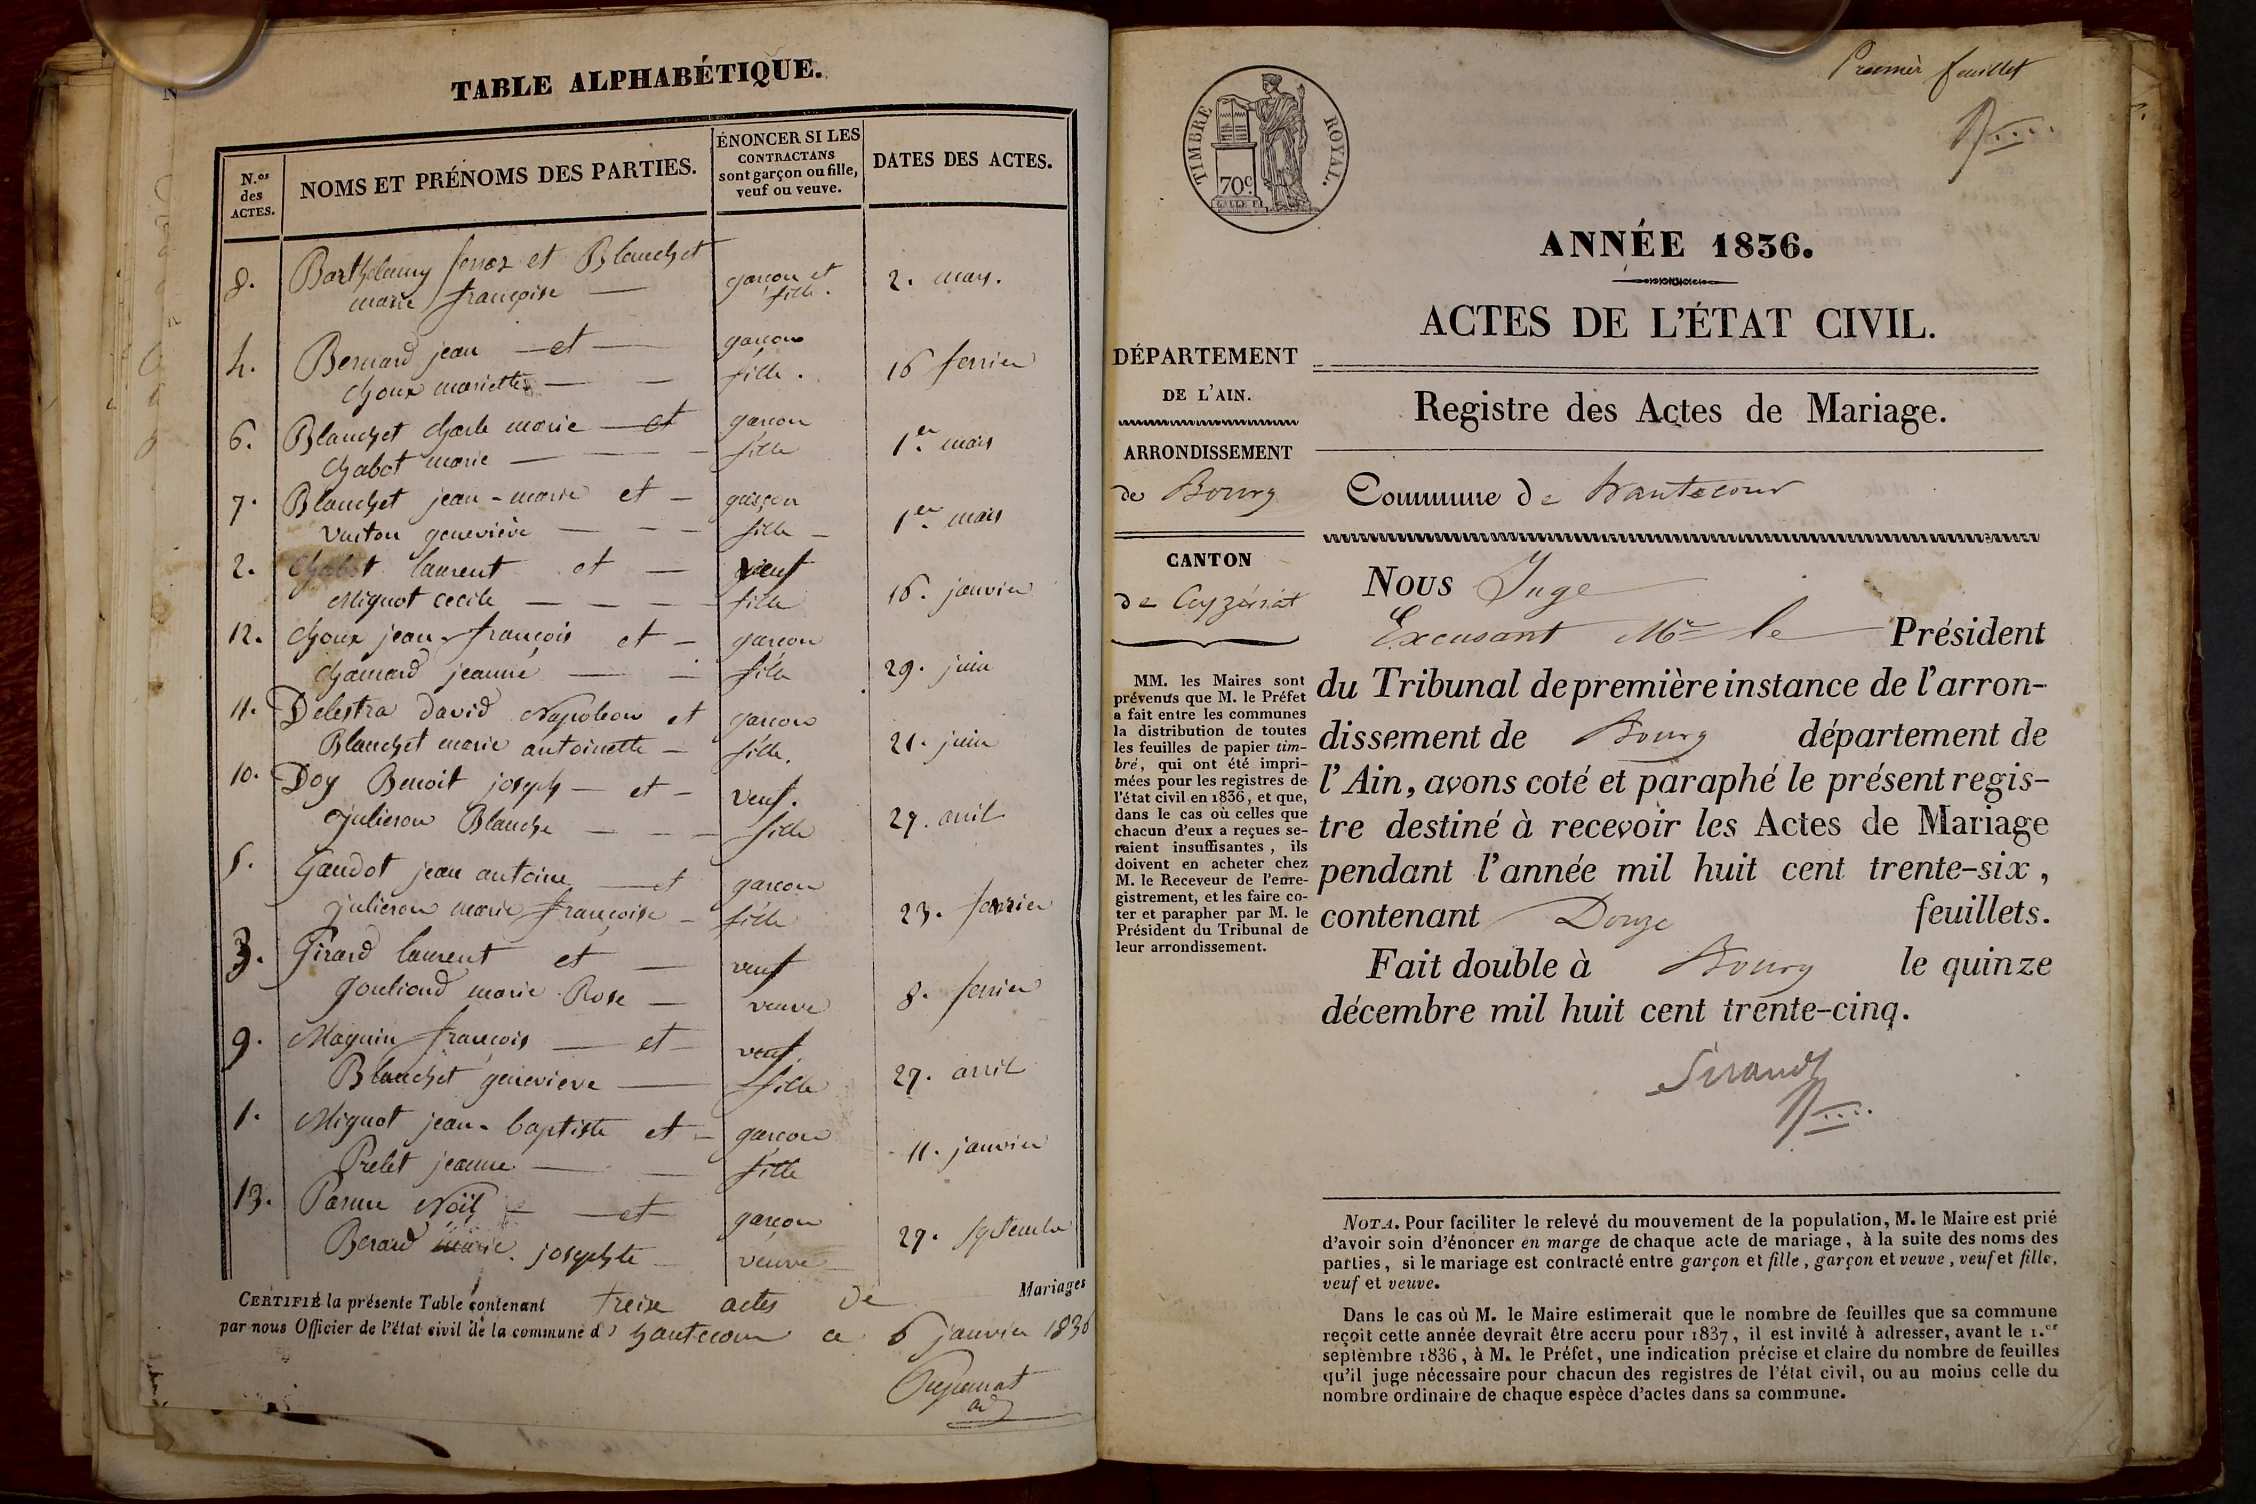 TABLE ALPHABÉTIQUE.
N.os
des
ACTES.
NOMS ET PRÉNOMS DES PARTIES.
ÉNONCER SI LES
CONTRACTANS
sont garçon ou fille,
veuf ou veuve.
DATES DES ACTES.
8. Barthelemy et Blanchet garçon et 2. mars.
marie françoise fille.
4. Bernard jean et garçon 16 fevrier
Choux mariette fille.
6. Blanchet charle marie et garçon 1er mars
Chabot marie fille
7. Blanchet jean-marie et garçon 1er mars
genevieve fille
2. Chabot laurent et veuf 16. janvier
Mignot cecile fille
12. Choux jean-françois et garçon 29. juin
Chanard jeanne fille
11. Delestra david Napoleon et garçon 21. juin
Blanchet marie antoinette fille.
10. Doy Benoit joseph et veuf. 27. avril
Julieron Blanche fille
5. Gaudot jean antoine et garçon 23. fevrier
julieron marie françoise fille
3. Girard laurent et veuf 8. fevrier
marie Rose veuve
9. Maguin françois et veuf. 27. avril
Blanchet genevieve fille
1. Mignot jean-baptiste et garçon 11. janvier
Prelet jeanne fille
13. Noël et garçon 27. septembre
Berard marie. josephte veuve
CERTIFIÉ la présente Table contenant treise actes de Mariages
par nous Officier de l'état civil de la commune d' hautecour ce 6 janvier 1836
Premier feuillet
TIMBRE ROYAL.
70c.
ANNÉE 1836.
ACTES DE L'ÉTAT CIVIL.
Registre des Actes de Mariage.
Commune de hautecour
DÉPARTEMENT
DE L'AIN.
ARRONDISSEMENT
de Bourg
CANTON
de Ceyzériat
MM. les Maires sont
prévenus que M. le Préfet
a fait entre les communes
la distribution de toutes
les feuilles de papier tim-
bré, qui ont été impri-
mées pour les registres de
l'état civil en 1836, et que,
dans le cas où celles que
chacun d'eux a reçues se-
raient insuffisantes, ils
doivent en acheter chez
M. le Receveur de l'enre-
gistrement, et les faire co-
ter et parapher par M. le
Président du Tribunal de
leur arrondissement.
Nous Juge
Excusant Mr le Président
du Tribunal de première instance de l'arron-
dissement de Bourg département de
l'Ain, avons coté et paraphé le présent regis-
tre destiné à recevoir les Actes de Mariage
pendant l'année mil huit cent trente-six,
contenant Douze feuillets.
Fait double à Bourg le quinze
décembre mil huit cent trente-cinq.
Sirand
NOTA. Pour faciliter le relevé du mouvement de la population, M. le Maire est prié
d'avoir soin d'énoncer en marge de chaque acte de mariage, à la suite des noms des
parties, si le mariage est contracté entre garçon et fille, garçon et veuve, veuf et fille,
veuf et veuve.
Dans le cas où M. le Maire estimerait que le nombre de feuilles que sa commune
reçoit cette année devrait être accru pour 1837, il est invité à adresser, avant le 1.er
septembre 1836, à M. le Préfet, une indication précise et claire du nombre de feuilles
qu'il juge nécessaire pour chacun des registres de l'état civil, ou au moins celle du
nombre ordinaire de chaque espèce d'actes dans sa commune.